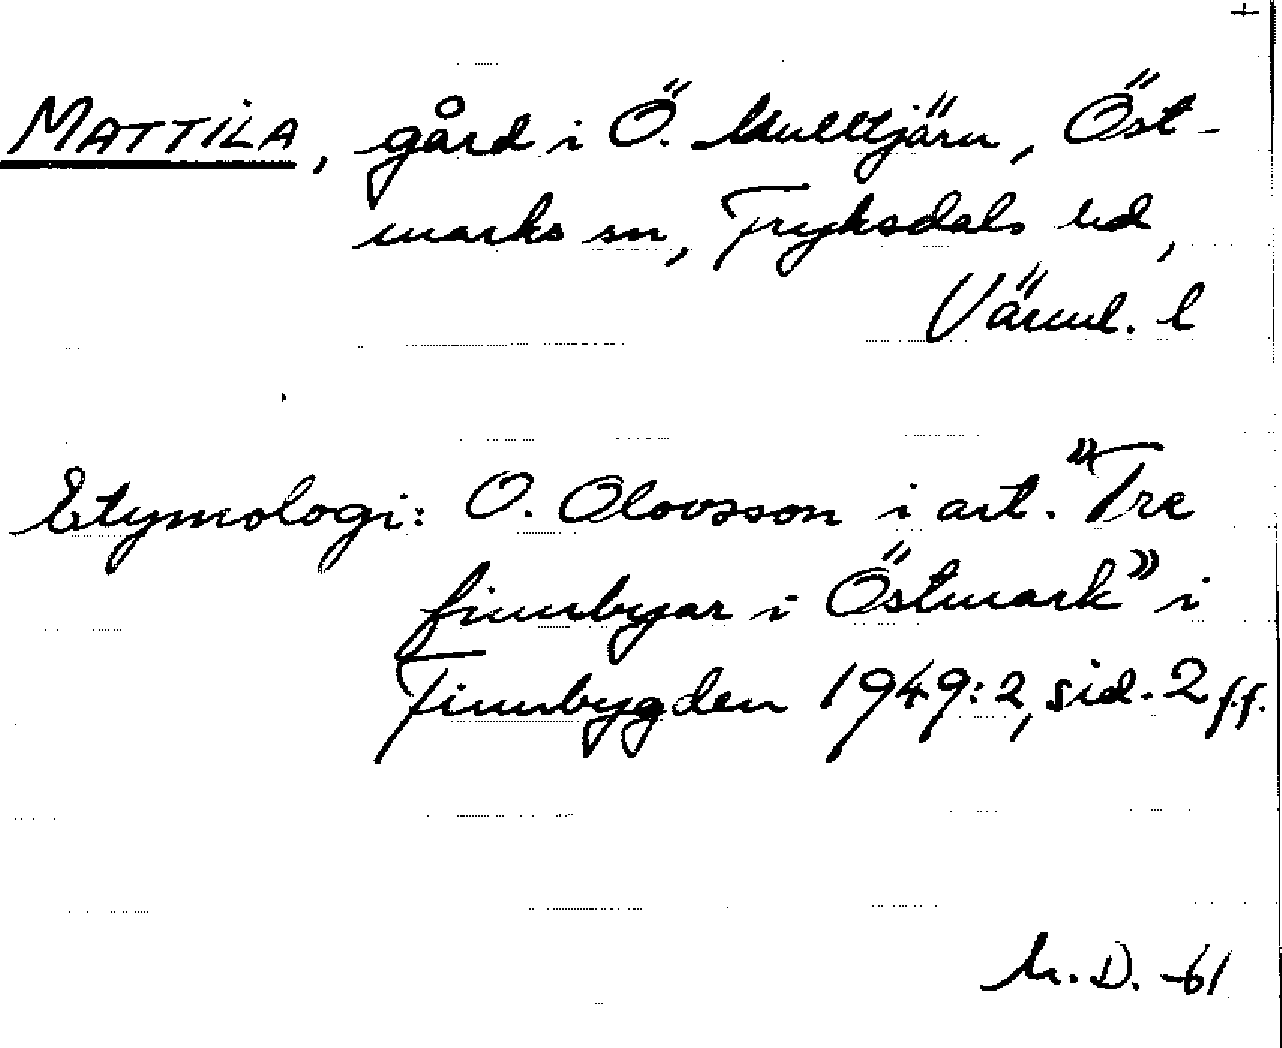 +
MATTILA, gård i Ö. Mulltjärn, Öst-
marks sn, Fryksdals hd,
Värml. l
Etymologi: O. Olovsson i art. "Tre
finnbyar i Östmark" i
Finnbygden 1949:2, sid. 2 ff.
M. D. -61